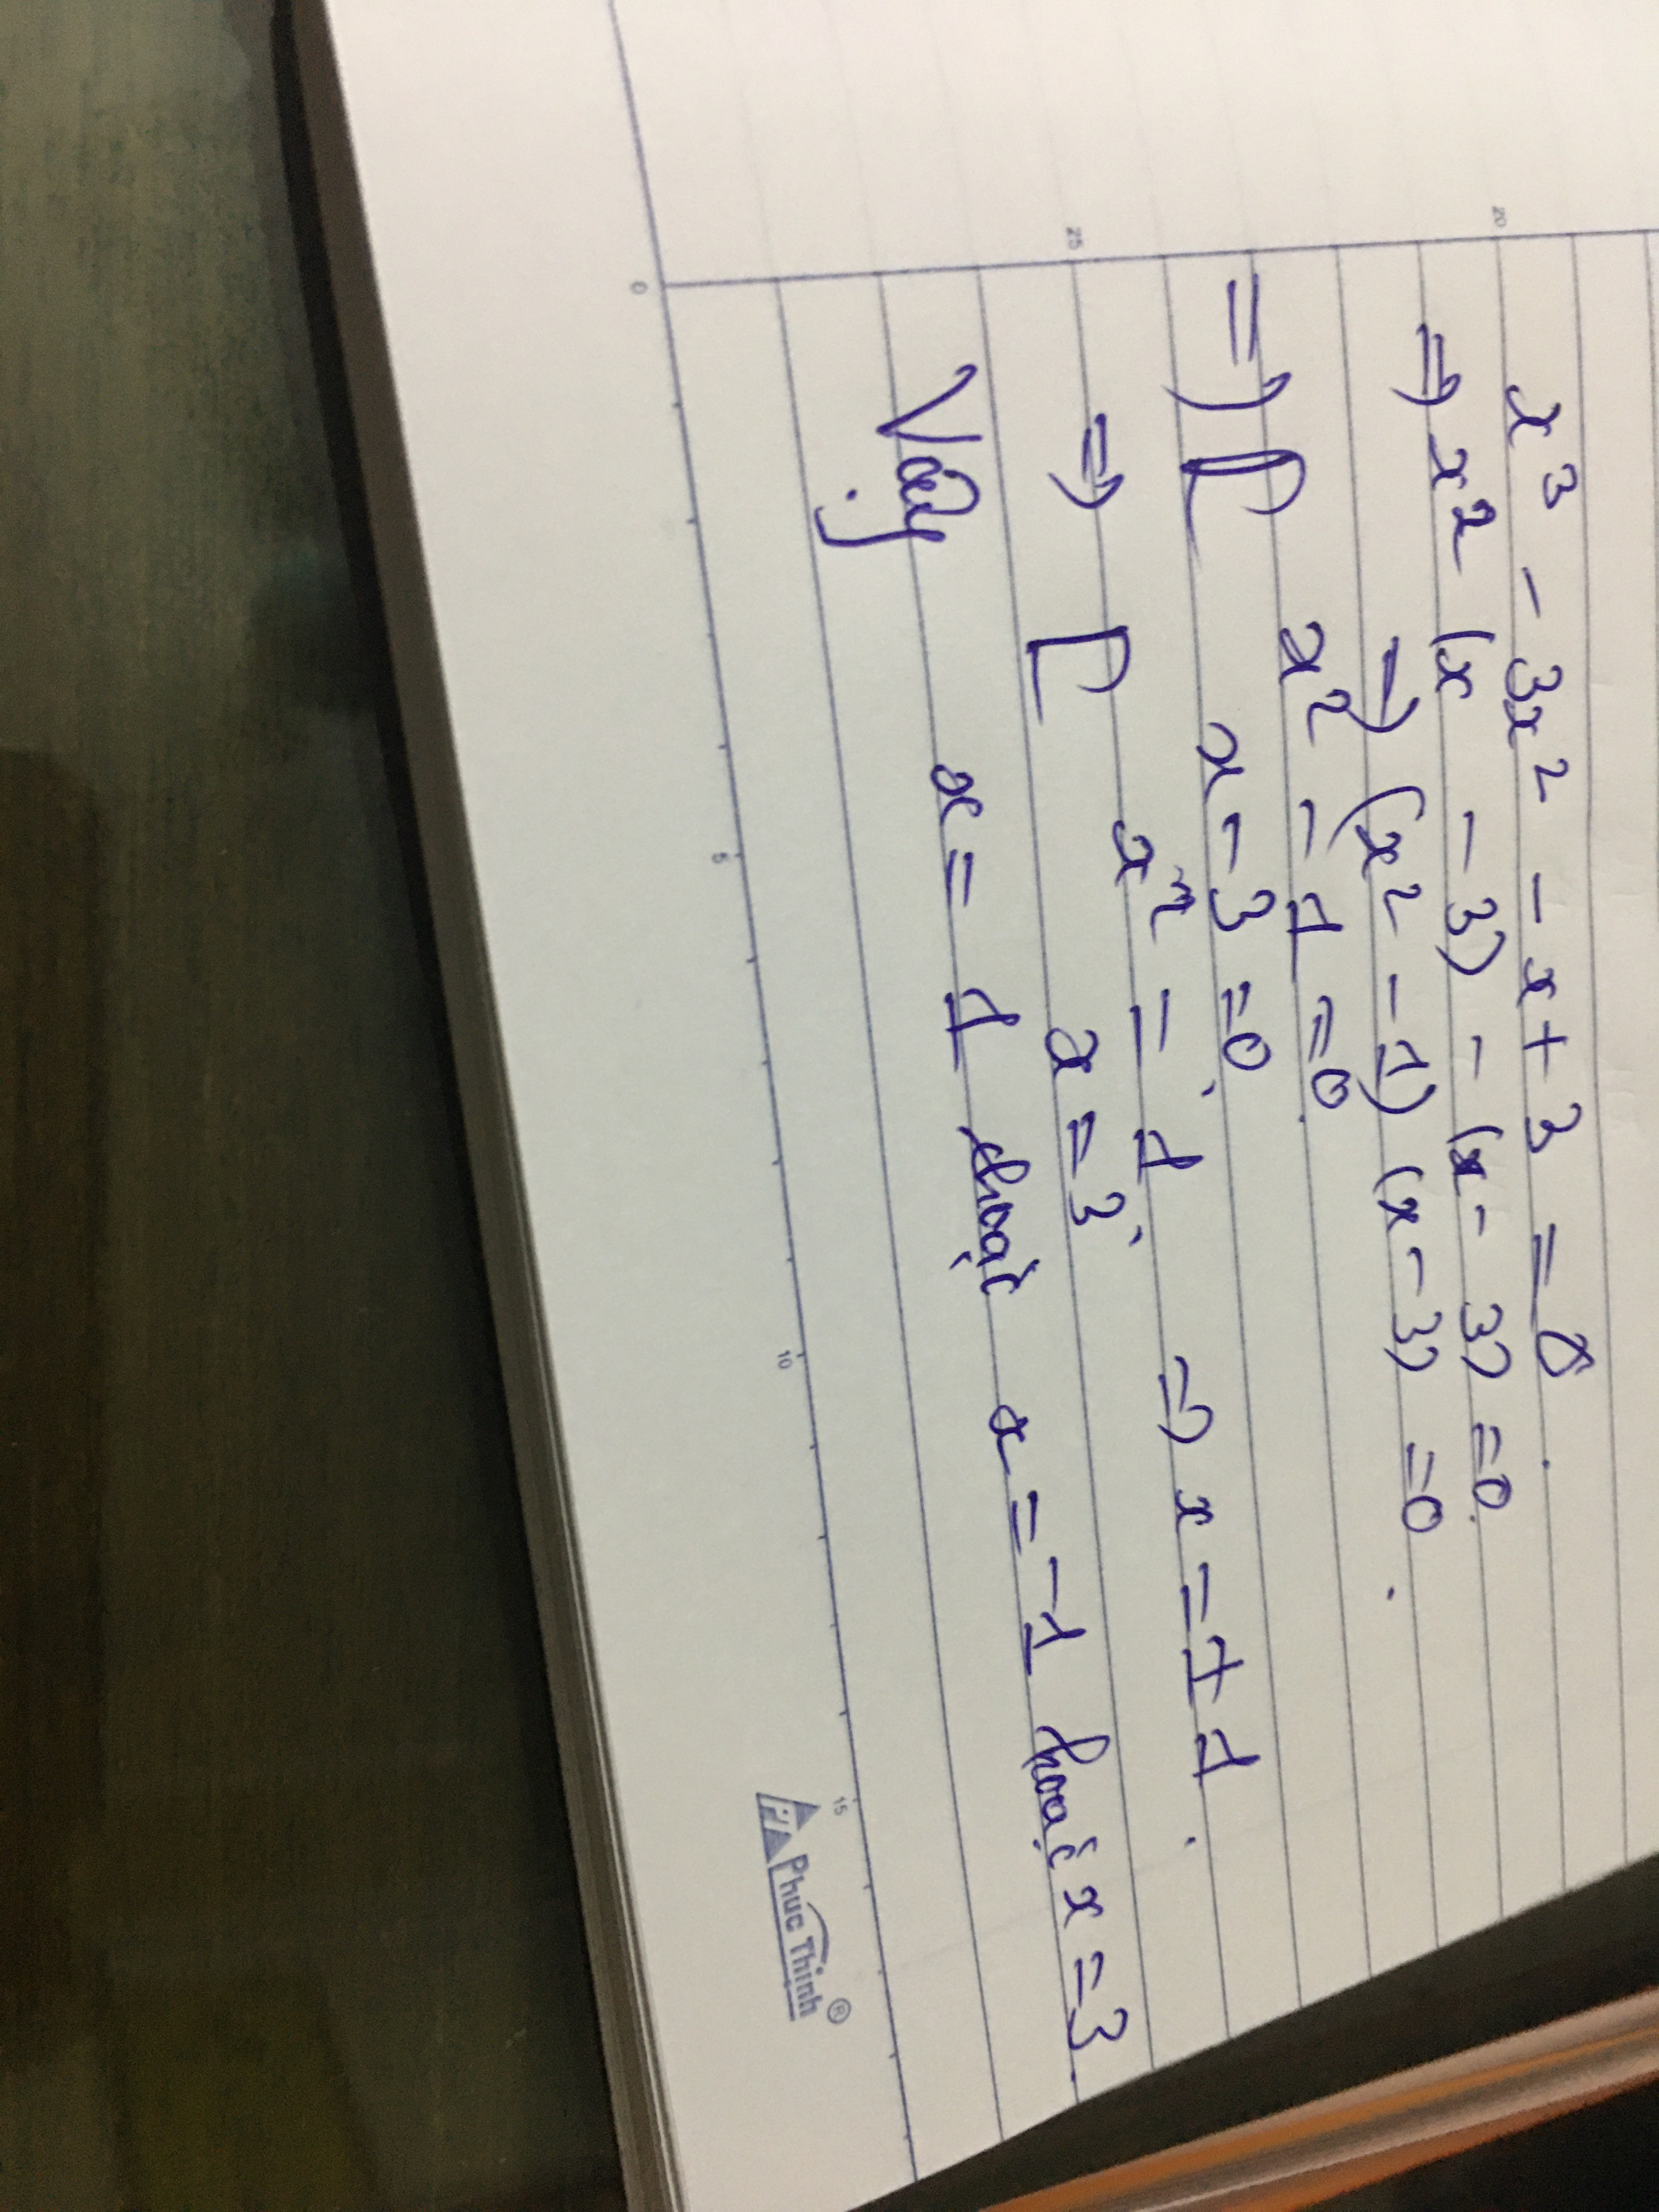 x³ - 3x² - x + 3 = 0.
⇒ x² (x - 3) - (x - 3) = 0.
⇒ (x² - 1) (x - 3) = 0.
⇒ [ x² - 1 = 0.
x - 3 = 0.
⇒ [ x² = 1 ⇒ x = ± 1.
x = 3.
Vậy x = 1 hoặc x = -1 hoặc x = 3.
20
25
0 5 10 15
Phuc Thinh ®